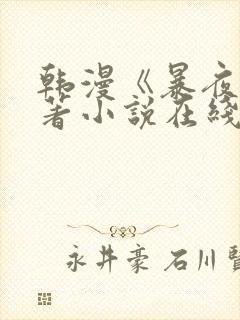 韩漫《暴夜
著小説在綫
永井豪 石川賢